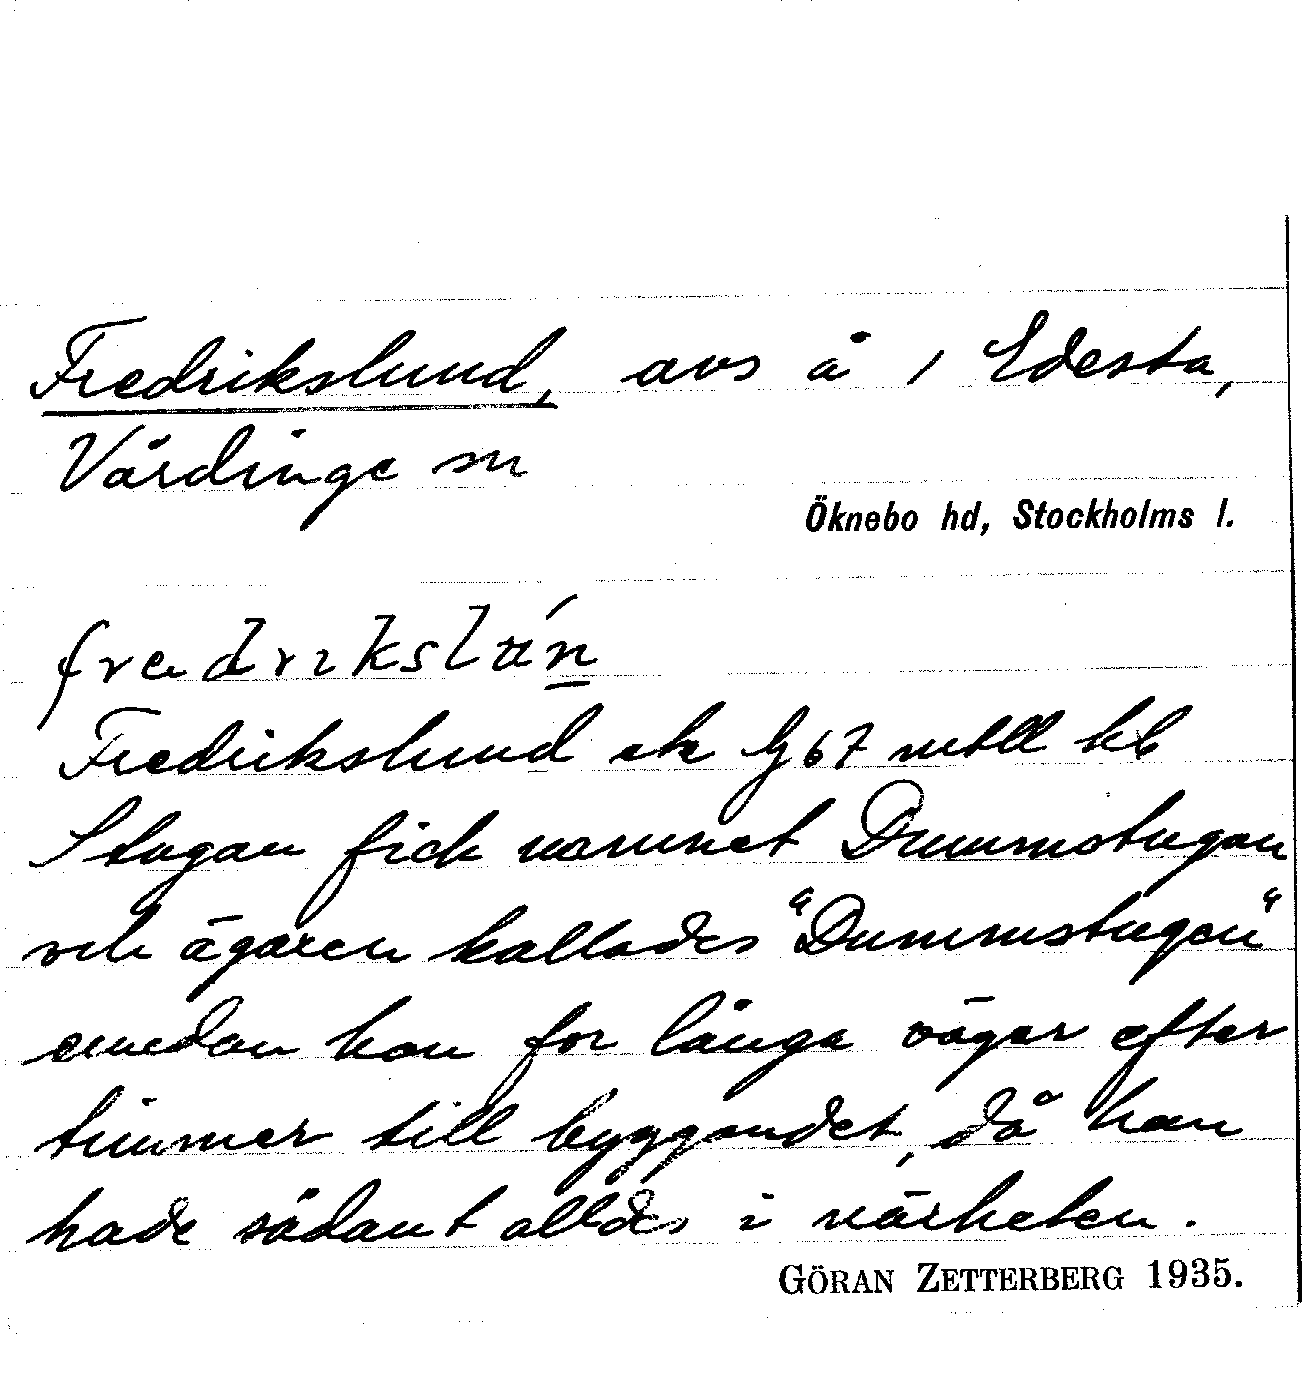 Fredrikslund, avs å 1 Edesta,
Vårdinge sn
Öknebo hd, Stockholms l.
Fredrikslund ek
Stugan fick namnet Dummstugan
och ägaren kallades "Dummstugen"
emedan han for långa vägar efter
timmer till byggandet, då han
hade sådant alldes i närheten.
GÖRAN ZETTERBERG 1935.